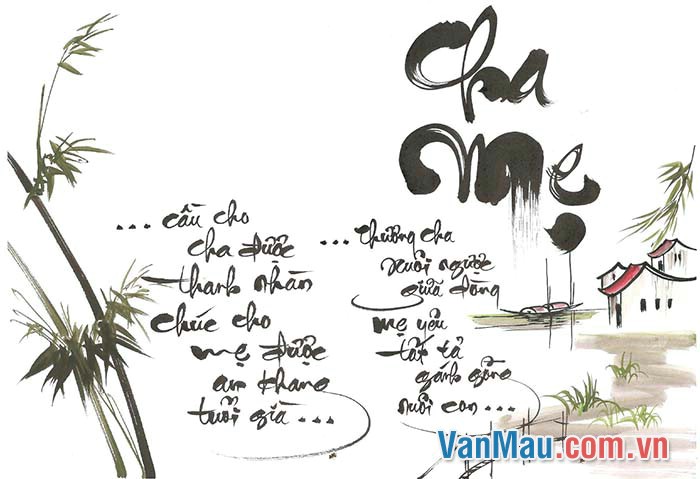 Cha
Mẹ
... cầu cho
cha được
thanh nhàn
chúc cho
mẹ được
an khang
tuổi già ...
... thương cha
xuôi ngược
giữa dòng
mẹ yêu
tất tả
gánh gồng
nuôi con ...
VanMau.com.vn